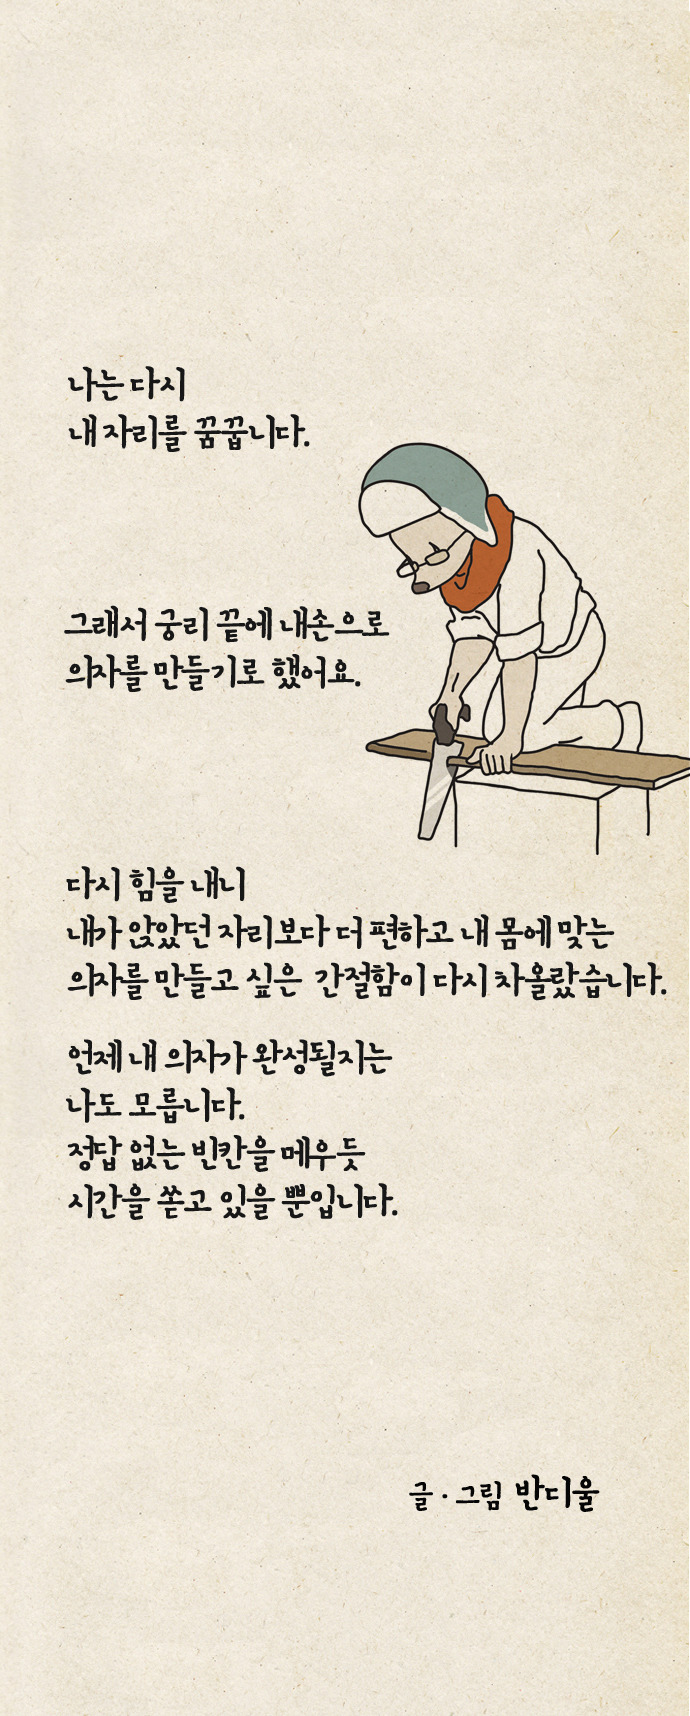 나는 다시
내 자리를 꿈꿉니다.
그래서 궁리 끝에 내손으로
의자를 만들기로 했어요.
다시 힘을 내니
내가 앉았던 자리보다 더 편하고 내 몸에 맞는
의자를 만들고 싶은 간절함이 다시 차올랐습니다.
언제 내 의자가 완성될지는
나도 모릅니다.
정답 없는 빈칸을 메우듯
시간을 쏟고 있을 뿐입니다.
글 · 그림 반디울